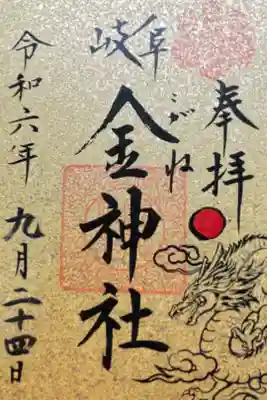 奉拝
岐阜
こがね
金神社
令和六年
九月二十四日